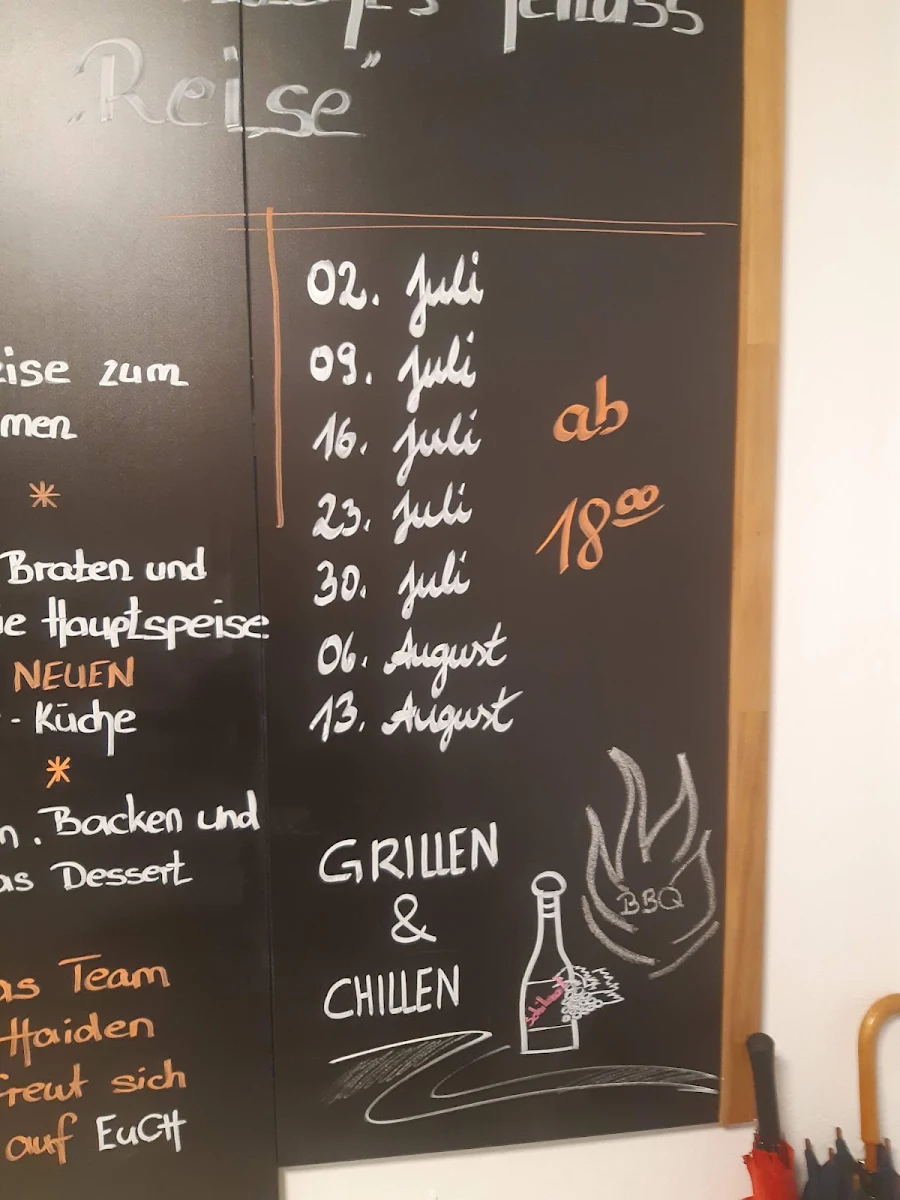 „Reise"
eise zum
men
*
Braten und
ie Hauptspeise
NEUEN
- Küche
*
n. Backen und
as Dessert
as Team
Haiden
freut sich
auf EuCH
02. Juli
09. Juli
16. Juli
23. Juli
30. Juli
06. August
13. August
ab
18⁰⁰
GRILLEN
&
CHILLEN
BBQ